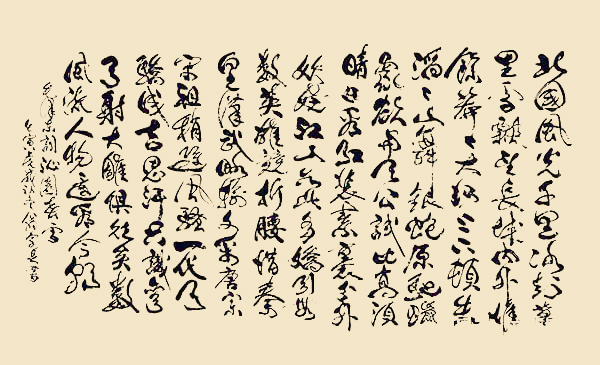 北國風光千里冰封萬
里雪飄望長城内外惟
餘莽々大河上下頓失
滔々山舞銀蛇原馳蠟
象欲與天公試比高須
晴日看紅裝素裹分外
妖嬈江山如此多嬌引無
數英雄競折腰惜秦
皇漢武略輸文采唐宗
宋祖稍遜風騷一代天
驕成吉思汗只識彎
弓射大雕俱往矣數
風流人物還看今朝
毛澤東詞沁園春雪